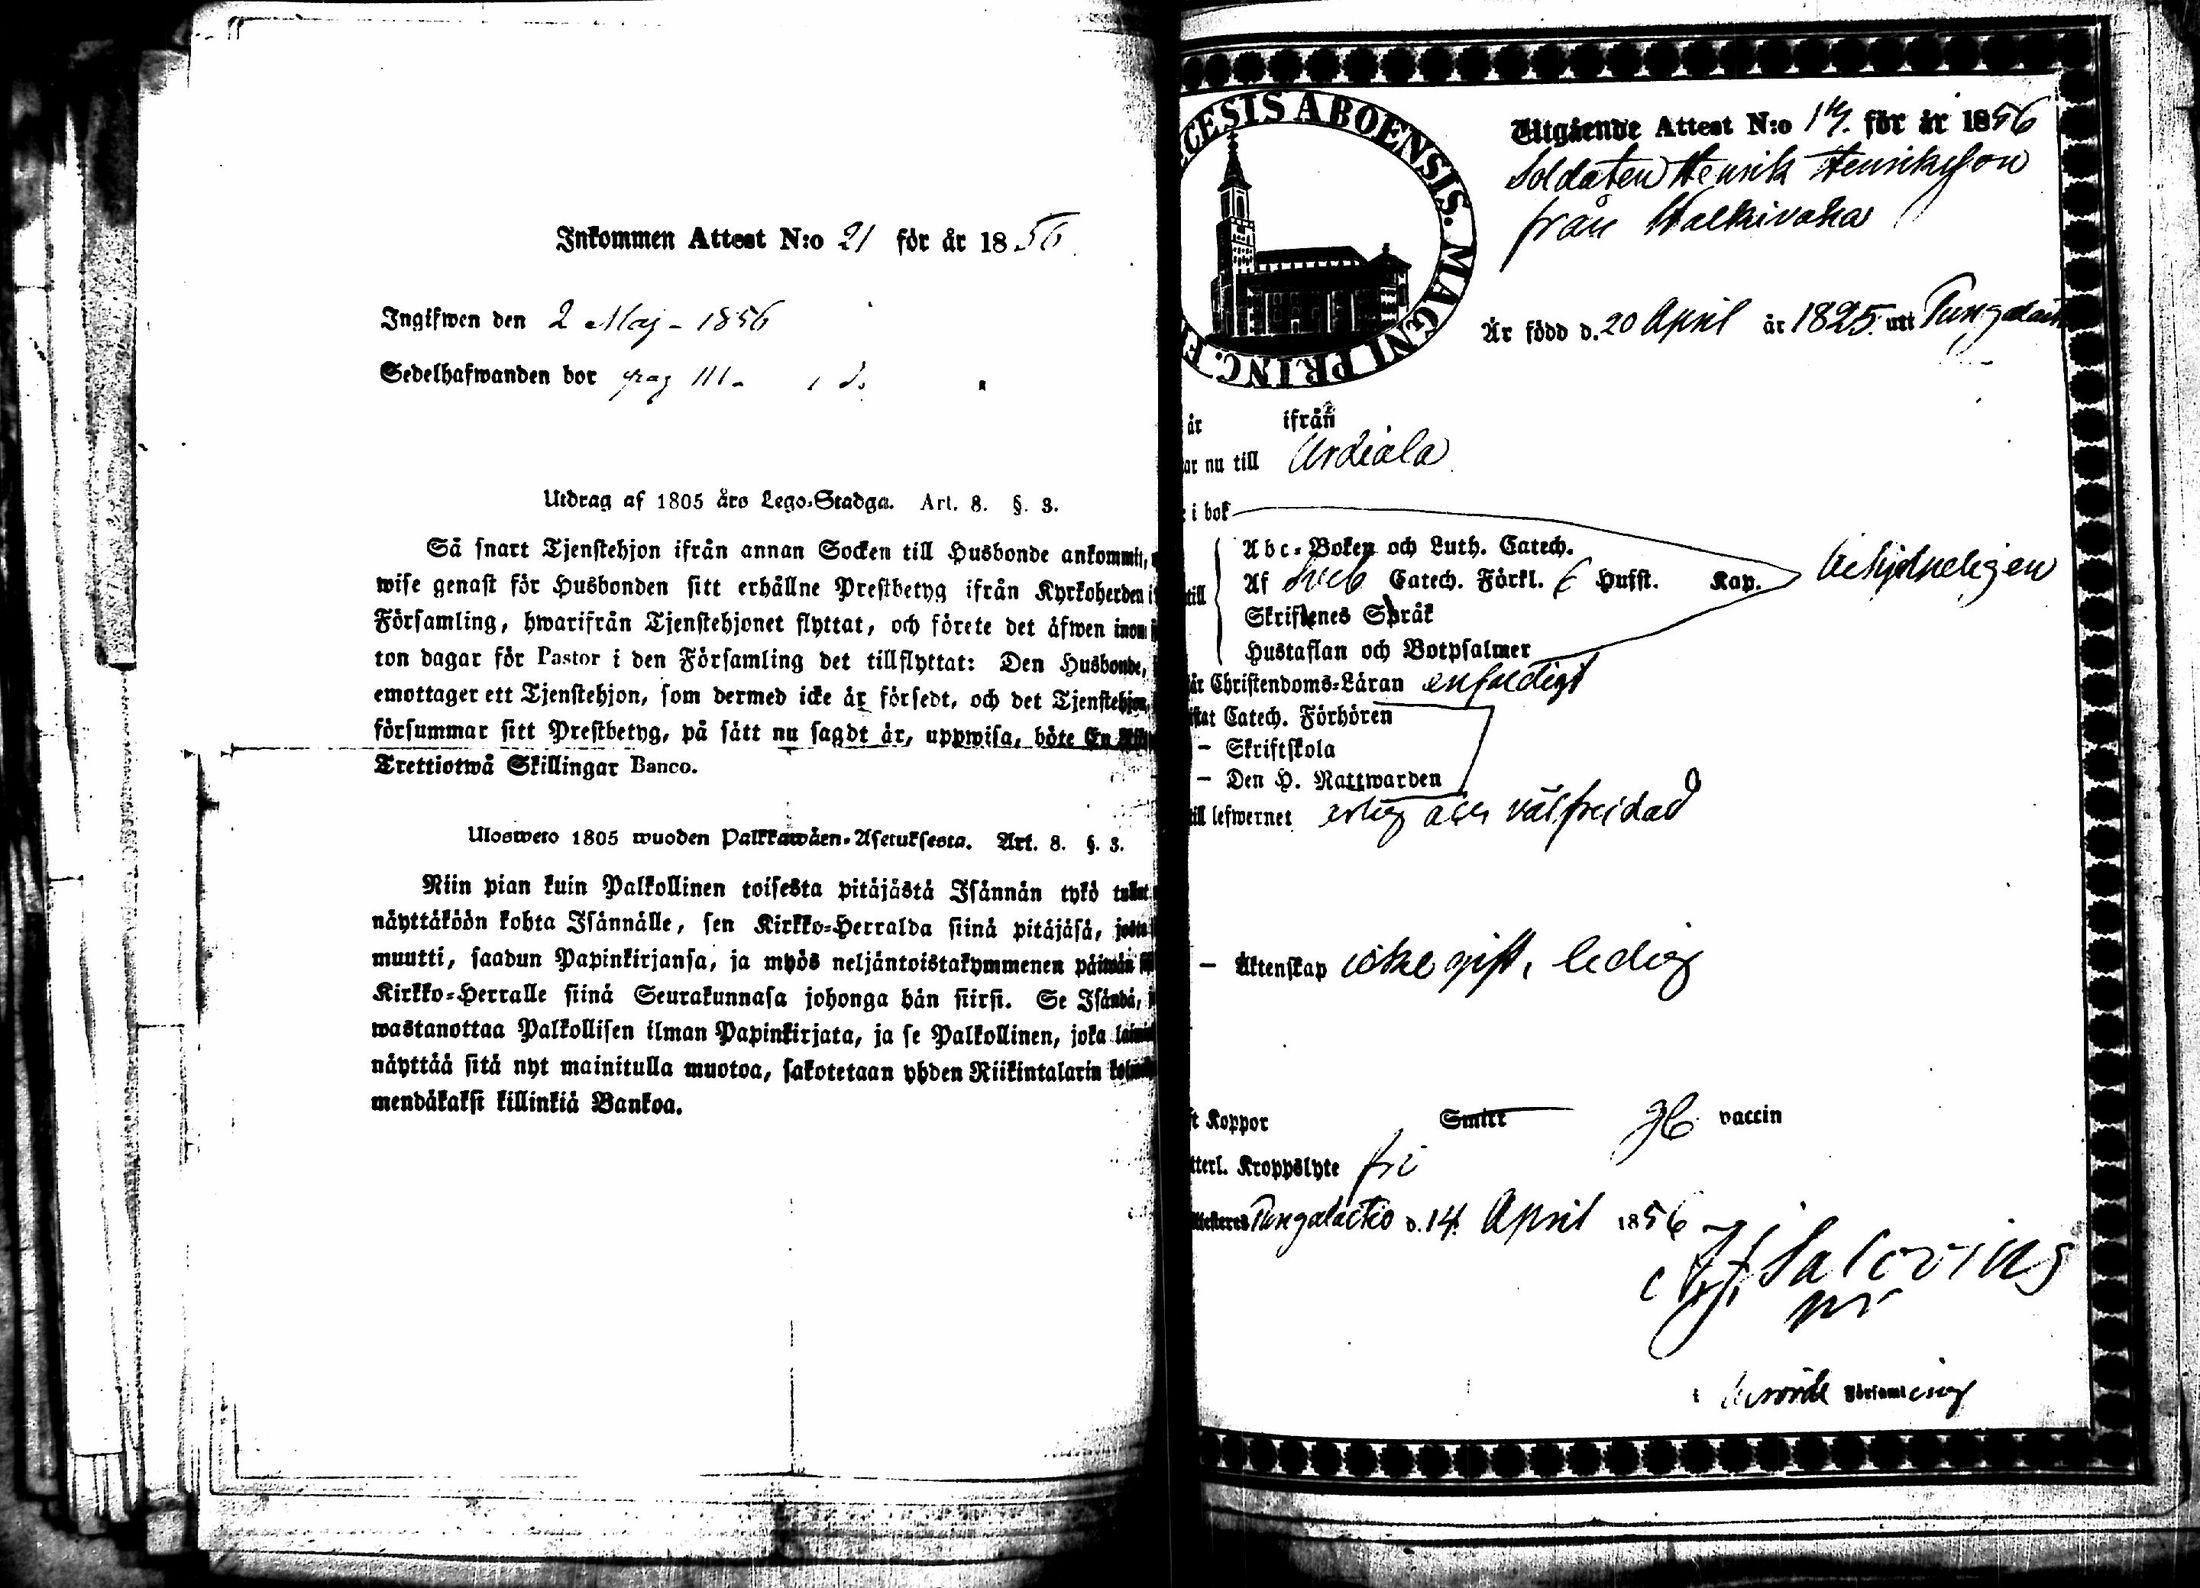 Inkommen Attest N:o 21 för år 1856
Ingifwen den 2 Maj - 1856
Sedelhafwanden bor pag 111 -
Utdrag af 1805 års Lego-Stadga. Art. 8. §. 3.
Så snart Tjenstehjon ifrån annan Socken till Husbonde ankommit,
wise genast för Husbonden sitt erhållne Prestbetyg ifrån Kyrkoherden i
Församling, hwarifrån Tjenstehjonet flyttat, och förete det äfwen inom
ton dagar för Pastor i den Församling det tillflyttat: Den Husbonde,
emottager ett Tjenstehjon, som dermed icke är försedt, och det Tjenstehjon,
försummar sitt Prestbetyg, på sätt nu sagdt är, uppwisa, böte En
Trettiotwå Skillingar Banco.
Ulosweto 1805 wuoden Palkkawäen-Asetuksesta. Art. 8. §. 3.
Niin pian kuin Palkollinen toisesta pitäjästä Isännän tykö
näyttäköön kohta Isännälle, sen Kirkko-Herralda siinä pitäjäsä, josta
muutti, saadun Papinkirjansa, ja myös neljäntoistakymmenen päiwän
Kirkko-Herralle siinä Seurakunnasa johonga hän siirsi. Se Isändä,
wastanottaa Palkollisen ilman Papinkirjata, ja se Palkollinen, joka
näyttää sitä nyt mainitulla muotoa, sakotetaan yhden Riikintalarin
mendäkaksi killinkiä Bankoa.
CESIS ABOENSIS. MAGNI PRINC. F
Utgående Attest N:o 14. för år 1856
Soldaten Henrik Henriksson
från Walkivaha
Är född d. 20 April år 1825. uti
år ifrån
ar nu till Urdiala
i bok
Abc-Boken och Luth. Catech.
till Af Sveb Catech. Förkl. Hufst. Kap. behjelpeligen
Skriftenes Språk
Hustaflan och Botpsalmer
är Christendoms-Läran enfaldigt
stat Catech. Förhören
- Skriftskola
- Den H. Nattwarden
till lefwernet ärlig och välfrejdad
- Äktenskap icke gift, ledig
ft Koppor Smitt vaccin
tterl. Kroppslyte fri
Attesteras Pungalaitio d. 14 April 1856
Salovius
Församling